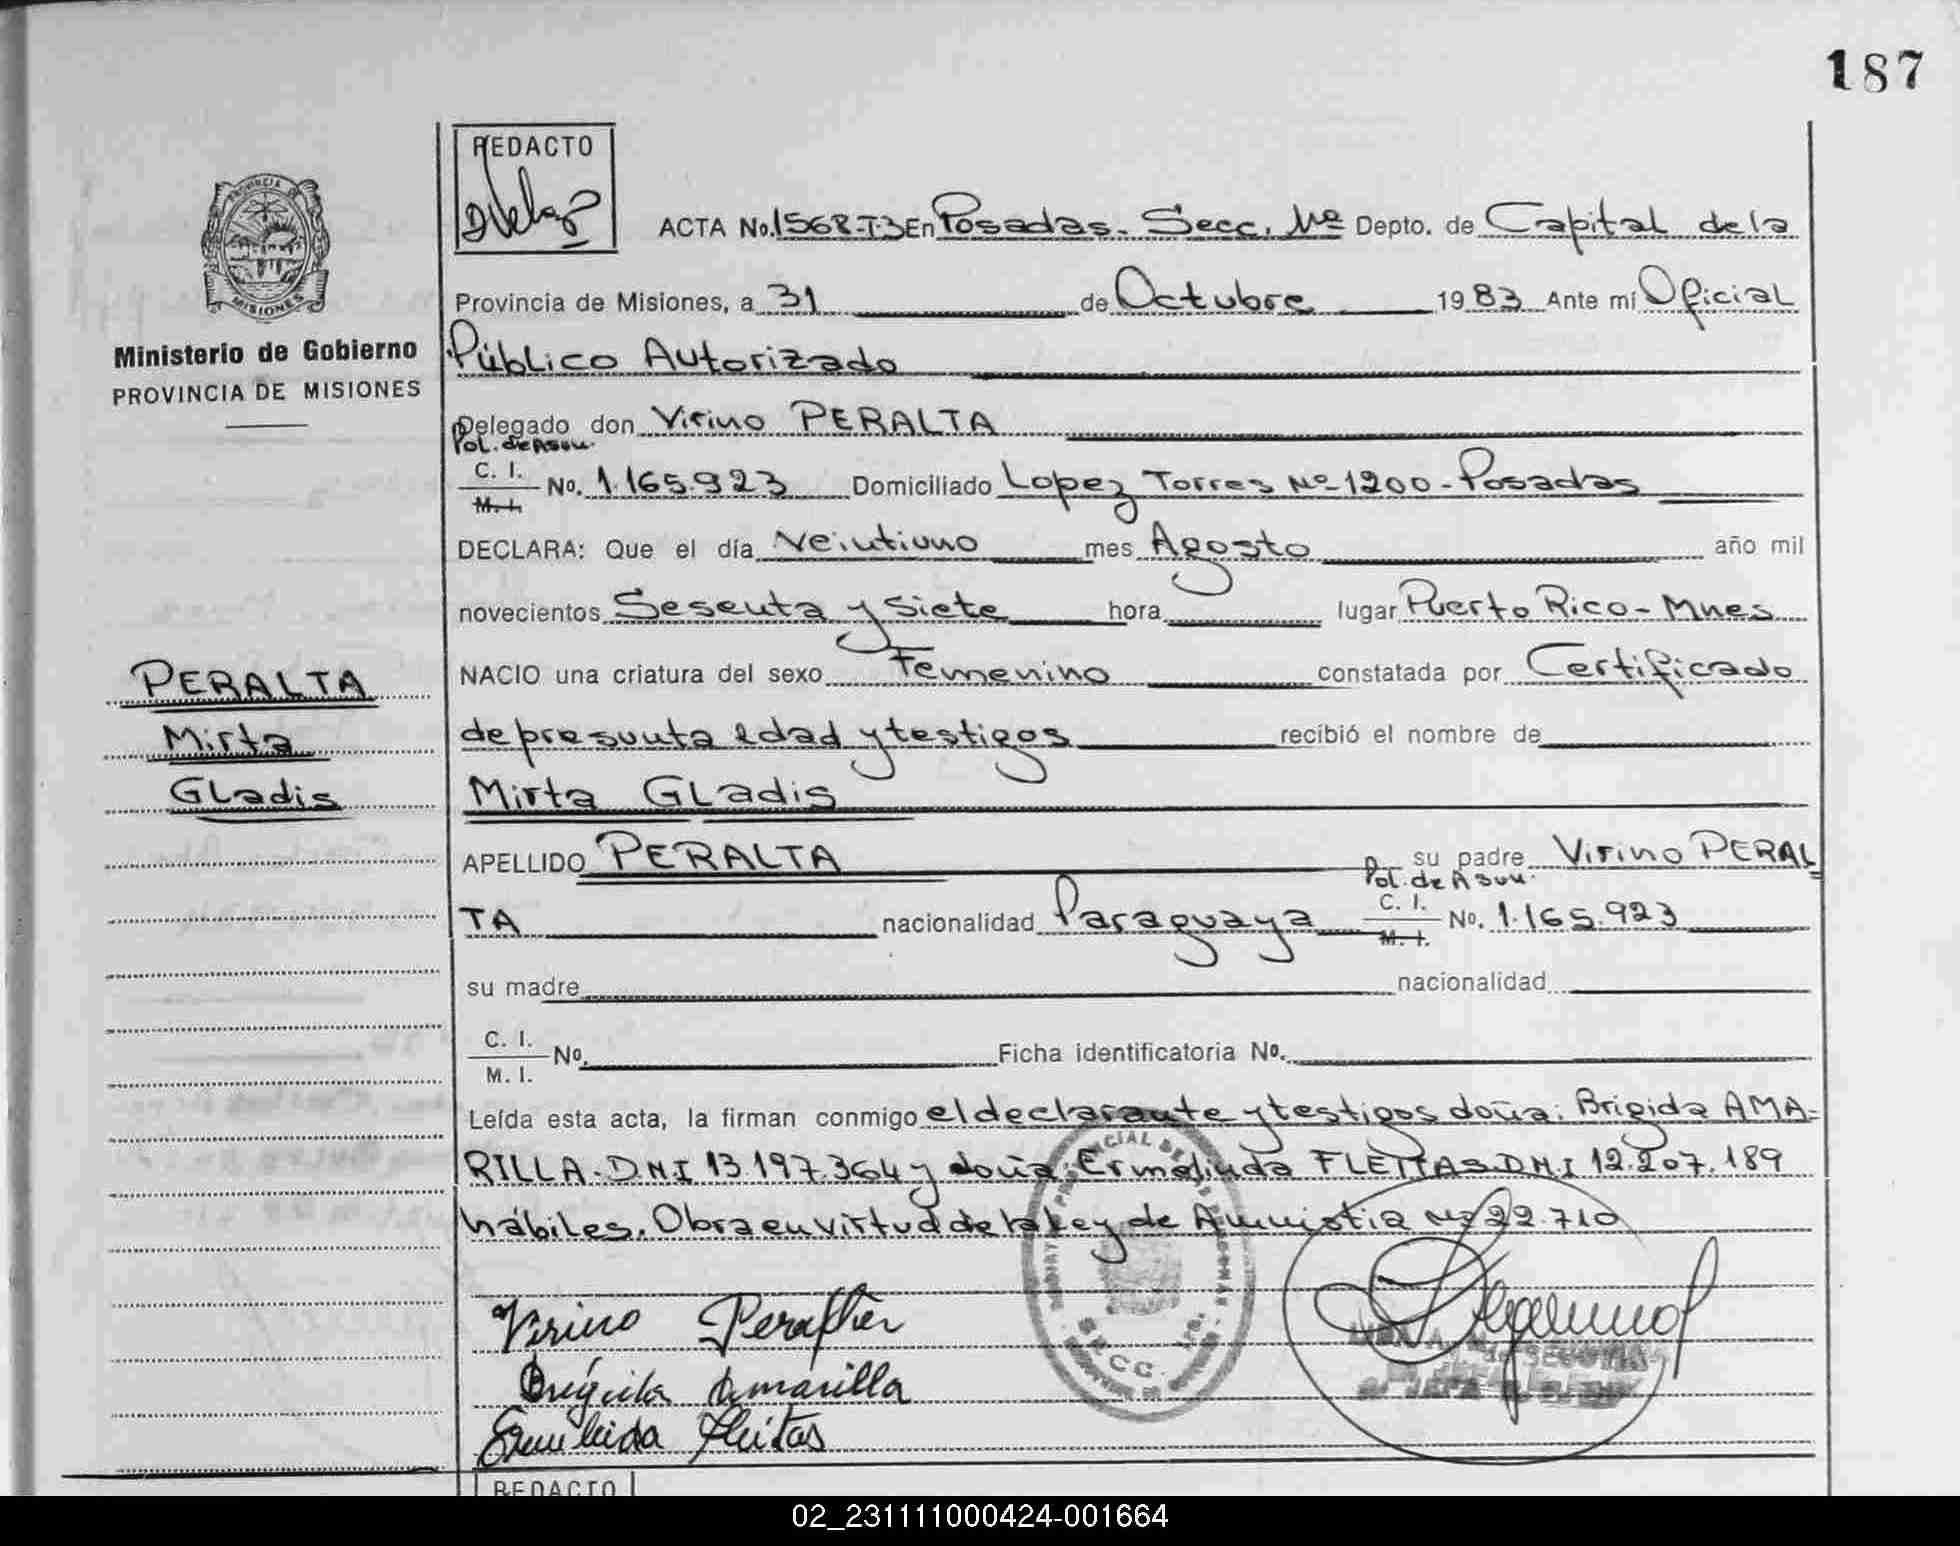 187
REDACTO
ACTA No. 1568-T3 En Posadas. Secc. 1ra Depto. de Capital de la
Provincia de Misiones, a 31 de Octubre 1983 Ante mí Oficial
Público Autorizado
Delegado don Virino PERALTA
Pol. de Asun.
C. I. M. I. No. 1.165.923 Domiciliado Lopez Torres Nº 1200 - Posadas
DECLARA: Que el día Veintiuno mes Agosto año mil
novecientos Sesenta y Siete hora lugar Puerto Rico - Mnes
NACIO una criatura del sexo Femenino constatada por Certificado
de presunta edad y testigos recibió el nombre de
Mirta Gladis
APELLIDO PERALTA su padre Virino PERAL
Pol. de Asun.
TA nacionalidad Paraguaya C. I. M. I. No. 1.165.923
su madre nacionalidad
C. I. M. I. No. Ficha identificatoria No.
Leída esta acta, la firman conmigo el declarante y testigos doña: Brigida AMA-
RILLA - DNI 13.197.364 y doña: Ermelinda FLEITAS DNI 12.207.189
hábiles. Obra en virtud de la Ley de Amnistia Nº 22.710
Virino Peralta
Brígida Amarilla
Ermelinda Fleitas
SECC. 1ra.
PROVINCIA DE MISIONES
Ministerio de Gobierno
PROVINCIA DE MISIONES
PERALTA
Mirta
Gladis
REDACTO
02_231111000424-001664